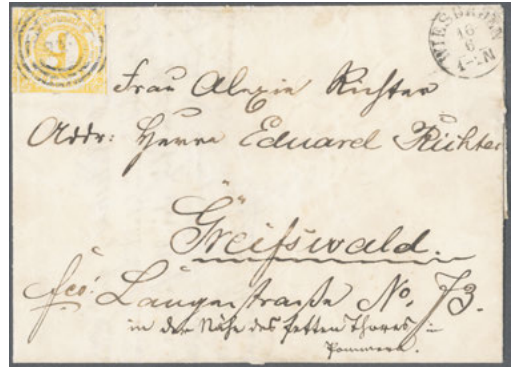 9
WIESBADEN
16
6
1-2N
Frau Alexie Richter
Addr: Herrn Eduard Richter
Greifswald.
fco: Langestraße No. 73.
in der Nähe des fetten Thores in
Pommern.